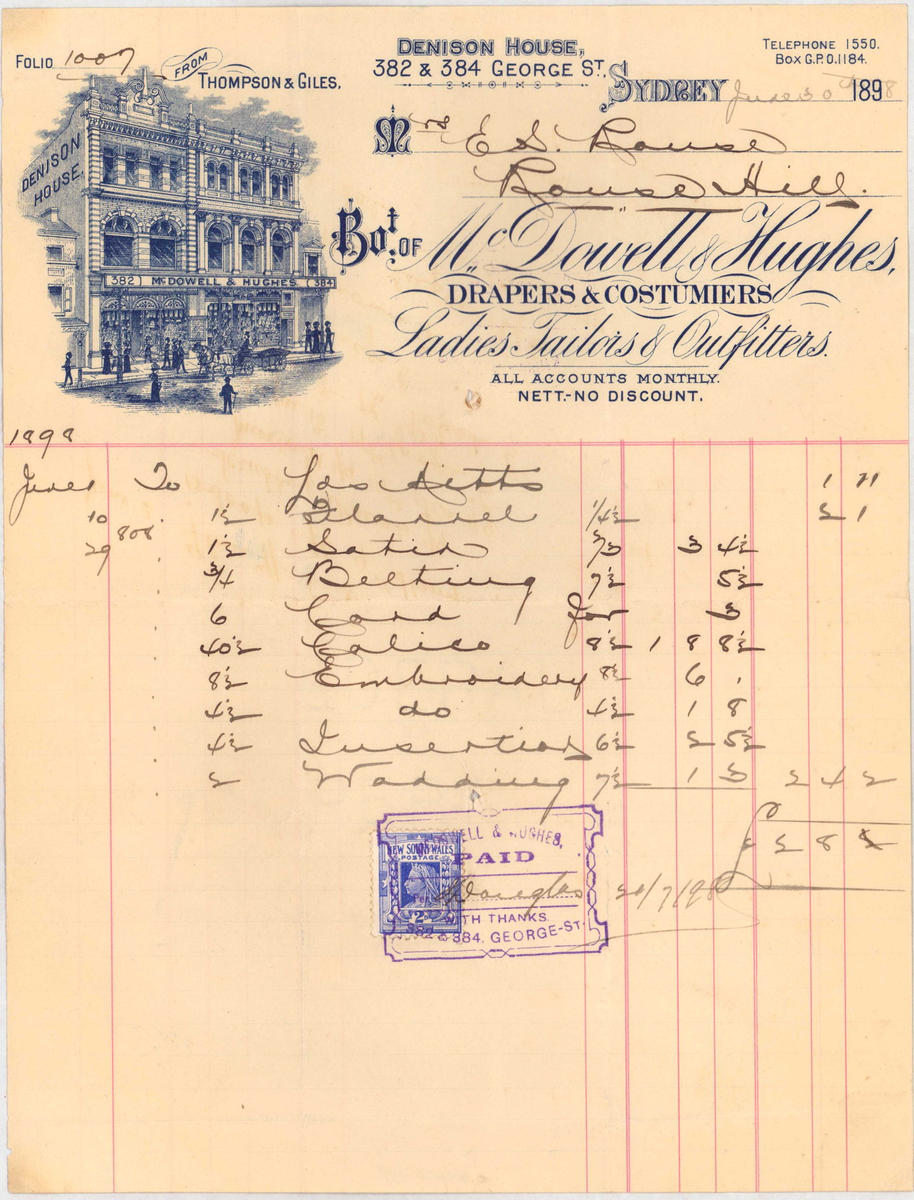 Folio 1007
FROM
THOMPSON & GILES,
DENISON HOUSE,
382 & 384 GEORGE ST,
TELEPHONE 1550.
BOX G.P.O.1184.
SYDNEY June 30th 1898
Mrs E S. Rouse
Rouse Hill.
DENISON HOUSE.
382 McDOWELL & HUGHES. 384
Bot. OF McDowell & Hughes,
DRAPERS & COSTUMIERS
Ladies Tailors & Outfitters.
ALL ACCOUNTS MONTHLY.
NETT.-NO DISCOUNT.
1898
June 1 To 1 11
10 1½ Flannel 1/4½ 2 1
29 808 1½ Satin 2/3 3 4½
3/4 Belting 7½ 5½
6 Cord for 3
40½ Calico 8½ 1 8 8½
8½ Embroidery 8½ 6 1
4½ do 4½ 1 8
4½ Insertion 6½ 2 5½
2 Wadding 7½ 1 3 2 4 2
£ 2 8 2
NEW SOUTH WALES
POSTAGE
2D
McDOWELL & HUGHES,
PAID
Douglas 20/7/98
WITH THANKS.
382 & 384. GEORGE-ST.